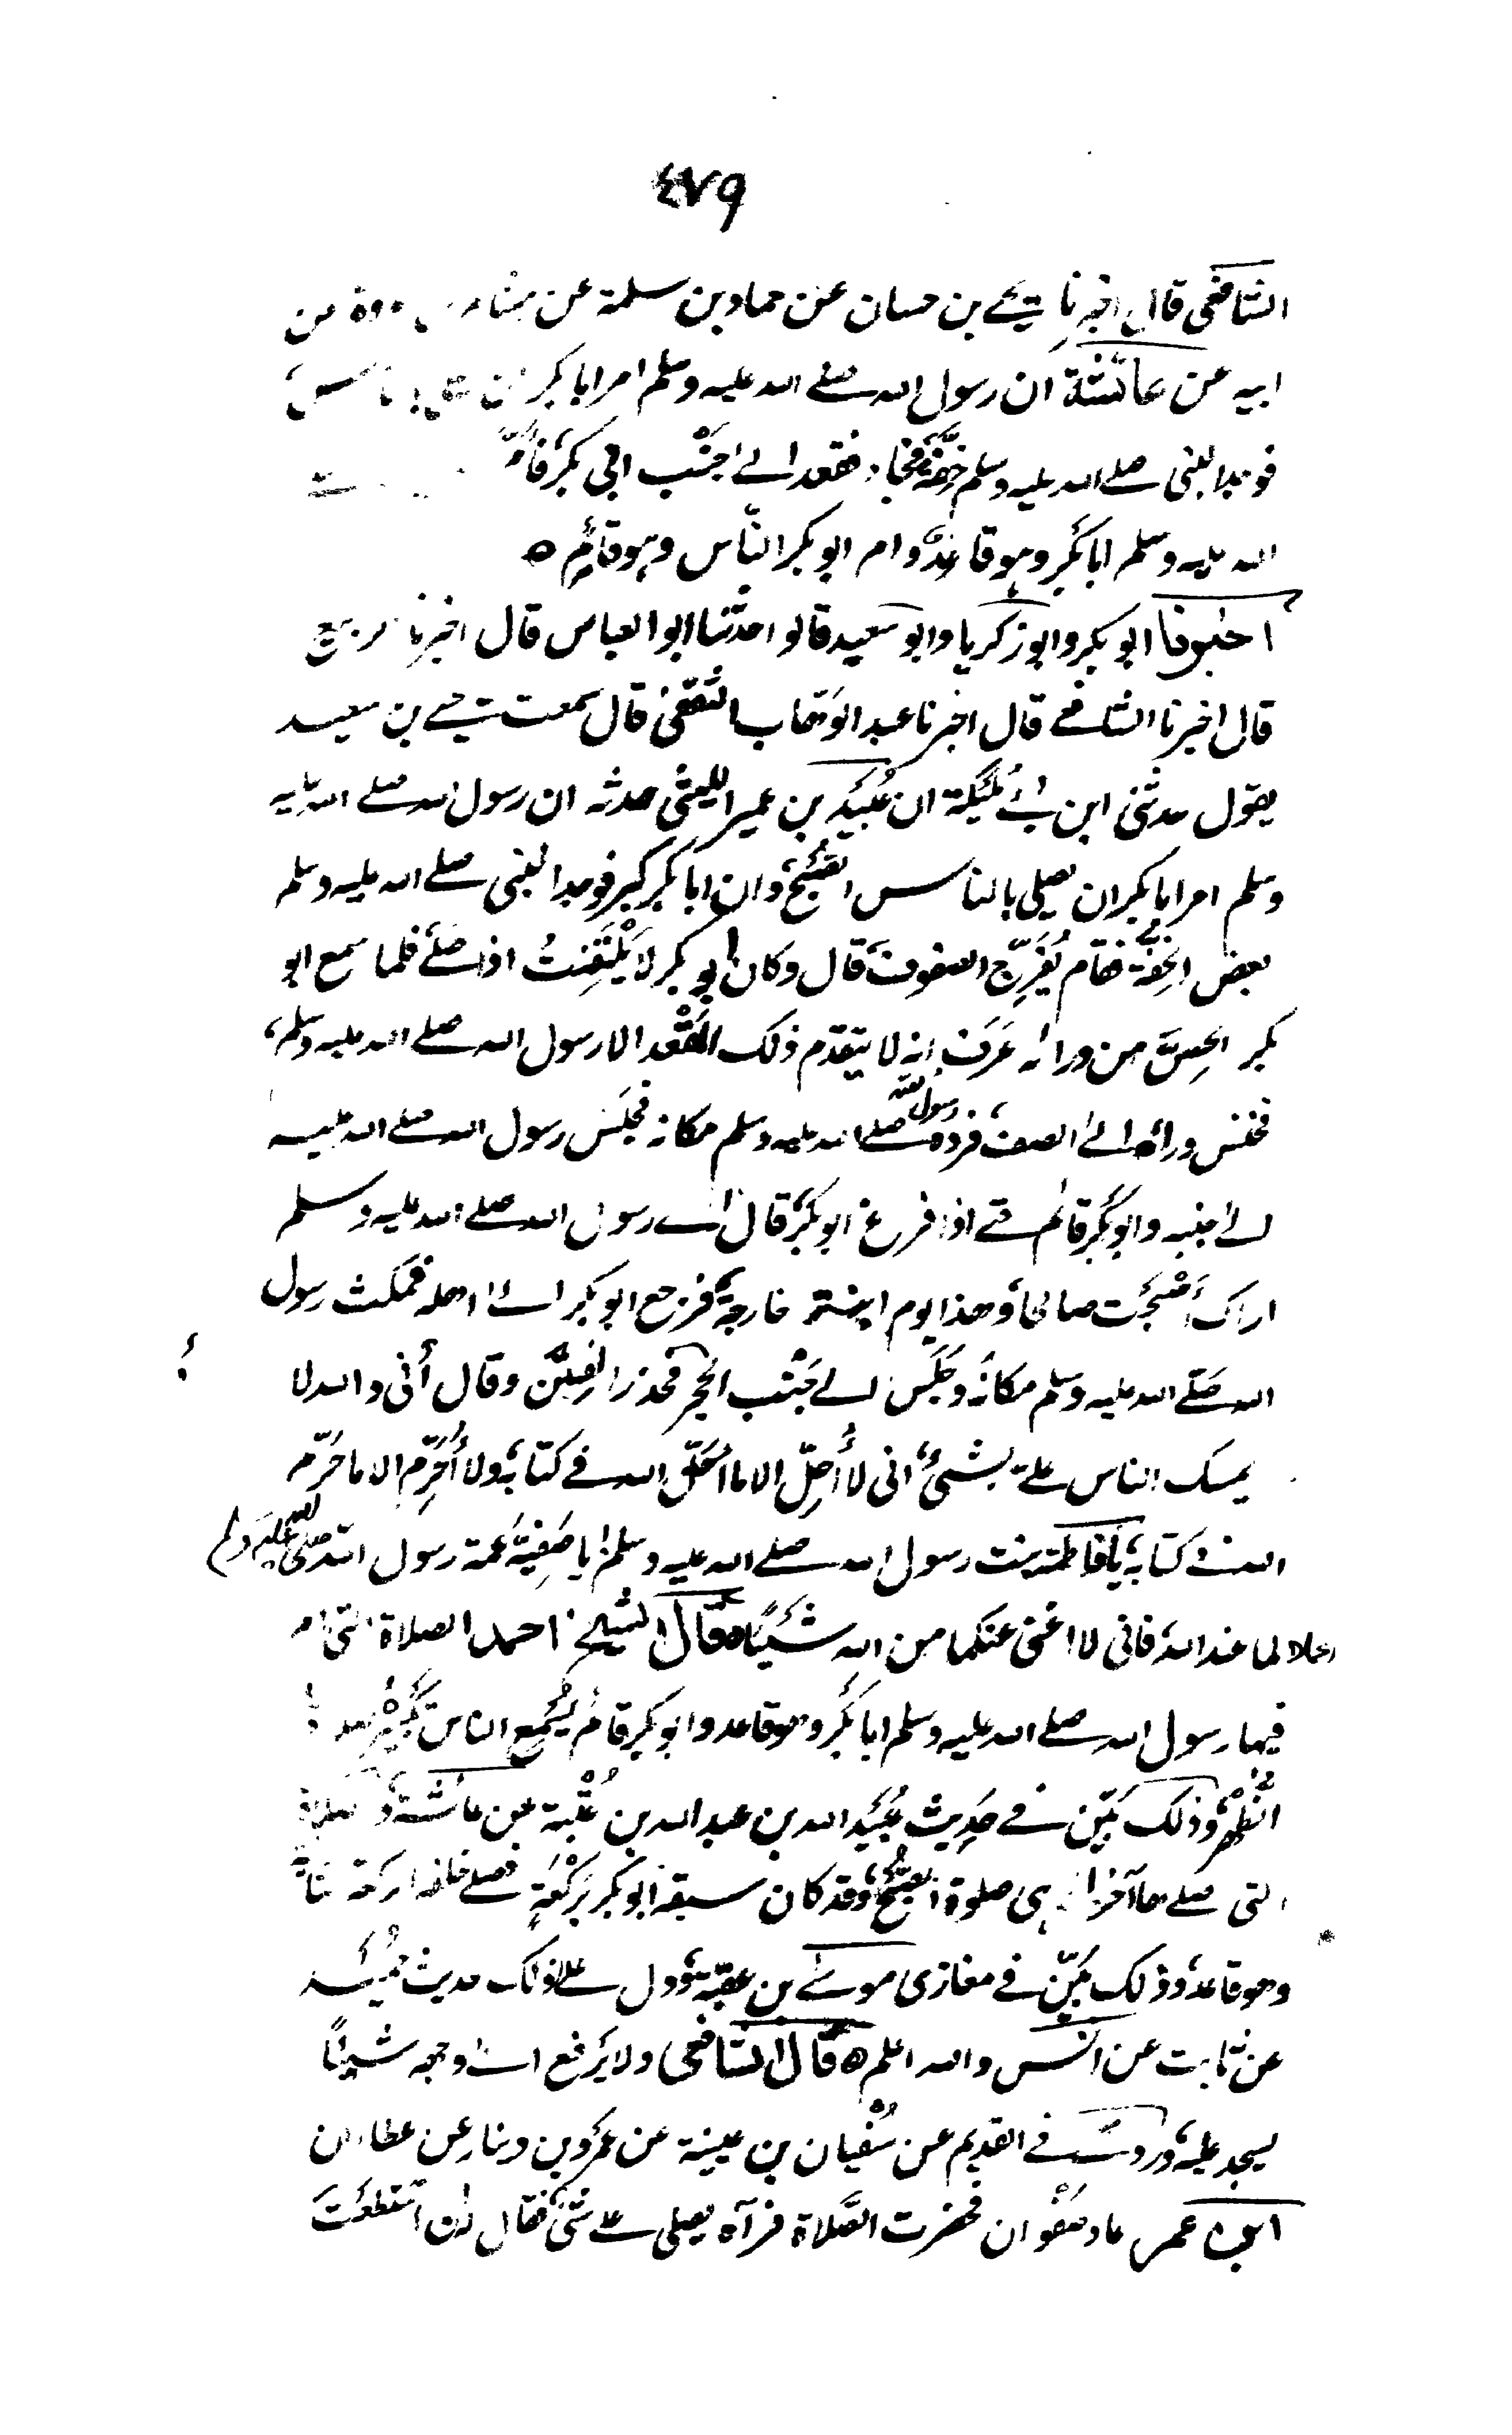 ٤٧٩
الشافعي قال اخبرنا يحيے بن حسان عن حماد بن سلمة عن عن
ابيه عن عائشة ان رسول الله صلے الله عليه وسلم امر ابا بكر ان
فوجد النبى صلے الله عليه وسلم خِفَّةً فجاء فقعد الے جَنْب ابي بكر فَامَّ
الله عليه وسلم ابا بكر وهو قاعِدٌ وام ابو بكر النّاس وهو قائم ه
اخبرنا ابو بكر وابو زكريا وابو سعيد قالوا حدثنا ابو العباس قال اخبرنا الربيع
قال اخبرنا الشافعے قال اخبرنا عبد الوَهّاب الثقفي قال سمعت يحيے بن سعيد
يقول حدثنى ابن ابے مُلَيْكَة ان عُبَيْد بن عمير الليثى حدثه ان رسول الله صلے الله عليه
وسلم امر ابا بكر ان يصلى بالناس الصُّبْحَ وان ابا بكر كبر فوجد النبى صلے الله عليه وسلم
بعض الخِفَّة فقام يُفَرِّج الصفوف قال وكان ابو بكر لا يَلْتَفِتُ اذا صلے فلما سمع ابو
بكر الحِسَّ من ورائه عَرَف انه لا يتقدم ذلك المَقْعد الا رسول الله صلے الله عليه وسلم
فخنس وراءه الے الصف فرده رسول الله صلے الله عليه وسلم مكانه فجلس رسول الله صلے الله عليه
الے جنبه وابو بكر قائم حتے اذا فرغ ابو بكر قال اے رسول الله صلے الله عليه وسلم
اراك اَصْبَحْت صالحا وهذا يوم ابنة خارجة فرجع ابو بكر الے اهله فمكث رسول
الله صَلّے الله عليه وسلم مكانه وجَلَسَ الے جَنْب الحجر فحذر الفِتَن وقال أنى والله لا
يمسك الناس علے بشئ انى لا اُحِلّ الا ما احَلّ الله فے كتابه ولا اُحَرِّم الا ما حَرّم
الله فے كتابه يا فاطمة بنت رسول الله صلے الله عليه وسلم يا صَفِيَّة عمة رسول الله صلى الله عليه وسلم
اعملا لما عند الله فانى لا اغنى عنكما من الله شَيْئًا ه قال الشيخ احمد الصلاة التى ام
فيها رسول الله صلے الله عليه وسلم ابا بكر وهو قاعد وابو بكر قائم يُسْمِع الناس تَكْبِيْره
الظُّهْر وذلك بَيِّن فے حَدِيث عُبَيْد الله بن عبد الله بن عُتْبة عن عائشة و
التى صلے ها آخرا هى صلوة الصُّبْح وقد كان سبقه ابو بكر بِرَكْعَةٍ فصلے خلفه ركعة
وهو قاعد وذلك بَيِّن فے مغازى موسے بن عقبة ودل علے ذلك حديث حُمَيْد
عن ثابت عن انس والله اعلم ه قال الشافعى ولا يَرْفع الے وجهه شيئًا
يسجد عليه ورو فے القديم عن سُفْيان بن عيينة عن عَمْرو بن دينار عن عطاء ان
ابن عمر عاد صَفْوان فحضرت الصَّلاة فرآه يصلى علے شئ فقال ان استَطَعْتَ